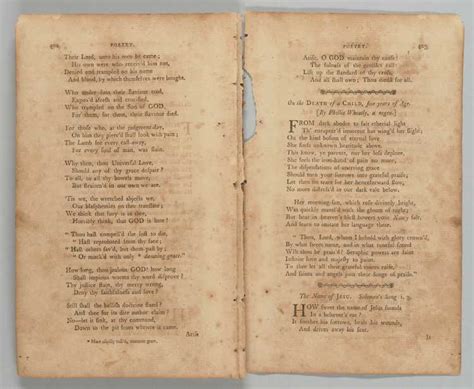 402. POETRY.
Their Lord, unto his own he came;
His own were who receiv'd him not,
Denied and trampled on his name
And blood, by which themselves were bought.
Who under foot their Saviour trod,
Expos'd afresh and crucified,
Who trampled on the Son of GOD,
For them, for them, their Saviour died.
For those who, at the judgment day,
On him they pierc'd shall look with pain;
The Lamb for every soul may,
For every soul of man, was slain.
Why then, thou Universal Love,
Should any of thy grace despair?
To all, to all, thy bowels move,
But straiten'd in our own we are.
'Tis we, the wretched abjects we,
Our blasphemies on thee translate;
We think that fury is in thee,
Horribly think, that GOD is hate!
" Thou hast compell'd the lost to die,
" Hast reprobated from thy face;
" Others hast sav'd, but them past by;
" Or mock'd with only * damning grace."
How long, thou jealous GOD! how long
Shall impious worms thy word disprove?
Thy justice stain, thy mercy wrong,
Deny thy faithfulness and love?
Still shall the hellish doctrine stand?
And thee for its dire author claim?
No—let it sink, at thy command,
Down to the pit from whence it came.
Arise
* More aptly call'd, common grace.
POETRY. 403.
Arise, O GOD maintain thy cause!
The fulness of the gentiles call
Lift up the standard of thy cross,
And all shall own; Thou diedst for all.
On the DEATH of a CHILD, five years of Age.
[By Phillis Wheatly, a negro.]
FROM dark abodes to fair etherial light
Th' enraptur'd innocent has wing'd her flight;
On the kind bosom of eternal love
She finds unknown beatitude above.
This know, ye parents, nor her loss deplore,
She feels the iron hand of pain no more;
The dispensations of unerring grace
Should turn your sorrows into grateful praise;
Let then no tears for her henceforward flow,
No more distress'd in our dark vale below.
Her morning sun, which rose divinely bright,
Was quickly mantled with the gloom of night;
But hear in heaven's blest bowers your Nancy fair,
And learn to imitate her language there.
" Thou, Lord, whom I behold with glory crown'd,
By what sweet name, and in what tuneful sound
Wilt thou be prais'd? Seraphic powers are faint
Infinite love and majesty to paint.
To thee let all their grateful voices raise,
And saints and angels join their songs of praise."
The Name of JESUS. Solomon's Song i. 3.
HOW sweet the name of Jesus sounds
In a believer's ear?
It soothes his sorrows, heals his wounds,
And drives away his fear.
It